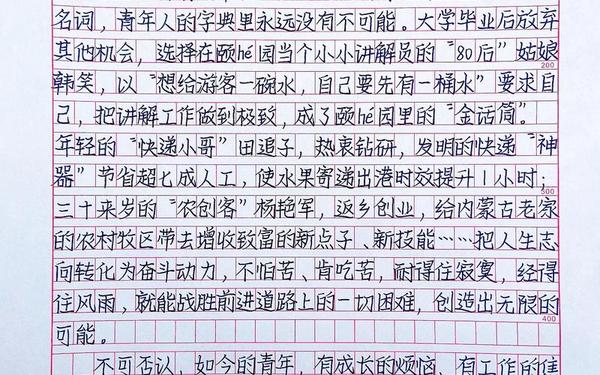 名词，青年人的字典里永远没有不可能。大学毕业后放弃
其他机会，选择在颐hé园当个小小讲解员的“80后”姑娘
200
韩笑，以“想给游客一碗水，自己要先有一桶水”要求自
己，把讲解工作做到极致，成了颐hé园里的“金话筒”。
年轻的“快递小哥”田追子，热衷钻研，发明的快递“神
器”节省超七成人工，使水果寄递出港时效提升1小时；
300
三十来岁的“农创客”杨艳军，返乡创业，给内蒙古老家
的农村牧区带去增收致富的新点子、新技能……把人生志
向转化为奋斗动力，不怕苦、肯吃苦，耐得住寂寞，经得
住风雨，就能战胜前进道路上的一切困难，创造出无限的
400
可能。
不可否认，如今的青年，有成长的烦恼、有工作的焦